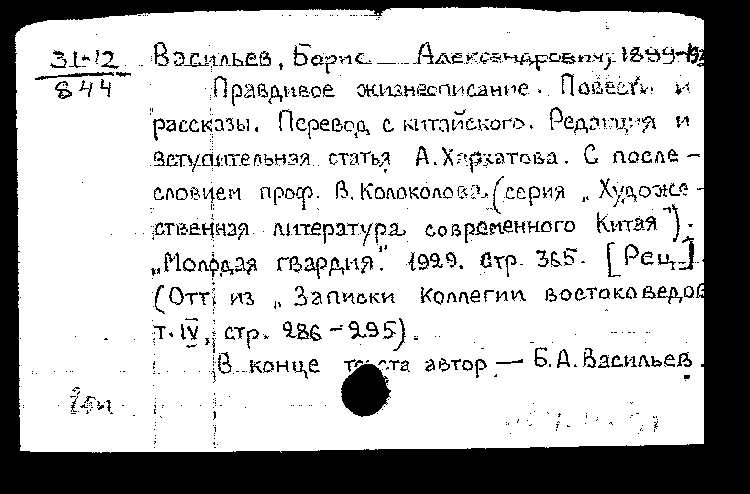 31-12
844
Васильев, Борис Александрович, 1899-
Правдивое жизнеописание. Повести и
рассказы. Перевод с китайского. Редакция и
вступительная статья А. Хархатова. С после-
словием проф. В. Колоколова. (серия „Художе-
ственная литература современного Китая").
„Молодая гвардия". 1929. Стр. 365. [Рец.].
(Отт. из „Записки Коллегии востоковедов
т. IV, стр. 286-295).
В конце текста автор — Б.А. Васильев.